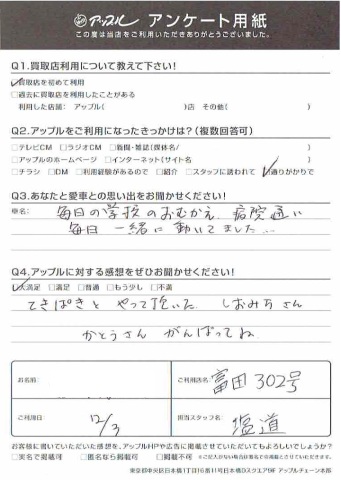 アップル アンケート用紙
この度は当店をご利用いただきありがとうございました。
Q1.買取店利用について教えて下さい!
☑買取店を初めて利用
□過去に買取店を利用したことがある
利用した店舗： アップル( )店 その他( )
Q2.アップルをご利用になったきっかけは?(複数回答可)
□テレビCM □ラジオCM □新聞・雑誌(媒体名 )
□アップルのホームページ □インターネット(サイト名 )
□チラシ □DM □利用経験があるので □紹介 □スタッフに誘われて ☑通りがかりで
Q3.あなたと愛車との思い出をお聞かせください!
車名: 毎日の学校のおむかえ 病院通い
毎日 一緒に動いてました…
Q4.アップルに対する感想をぜひお聞かせください!
☑大満足 □満足 □普通 □もう少し □不満
てきぱきと やって頂いた しおみちさん
かとうさん がんばってね
お名前
ご利用店名: 富田302号
ご利用日 12/3
担当スタッフ名: 塩道
お客様に書いていただいた感想を、アップルHPや広告に掲載させていただいてもよろしいでしょうか?
□実名で掲載可 □匿名なら掲載可 □不可
東京都中央区日本橋1丁目16番11号日本橋Dスクエア9F アップルチェーン本部